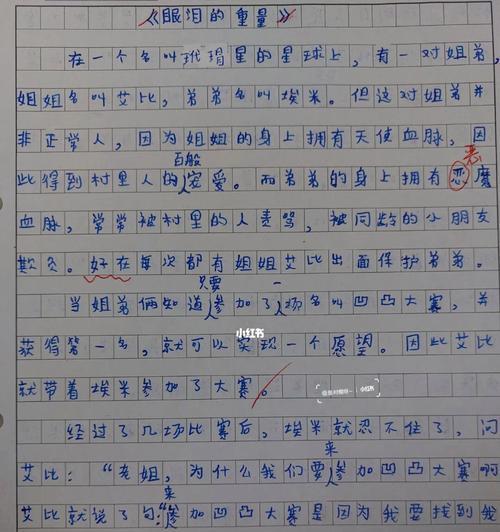 《眼泪的重量》
在一个名叫玳瑁星的星球上，有一对姐弟，
姐姐名叫艾比，弟弟名叫埃米。但这对姐弟并
非正常人，因为姐姐的身上拥有天使血脉，因
百般
此得到村里人的宠爱。而弟弟的身上拥有恶魔
恶
血脉，常常被村里的人责骂，被同龄的小朋友
欺负。好在每次都有姐姐艾比出面保护弟弟。
只要 一
当姐弟俩知道参加了场名叫凹凸大赛，并
获得第一名，就可以实现一个愿望。因此艾比
就带着埃米参加了大赛。
经过了几场比赛后，埃米就忍不住了，问
艾比：“老姐，为什么我们要参加凹凸大赛啊
来
艾比就说了句：“参加凹凸大赛是因为我要找到我
来
小红书
小红书